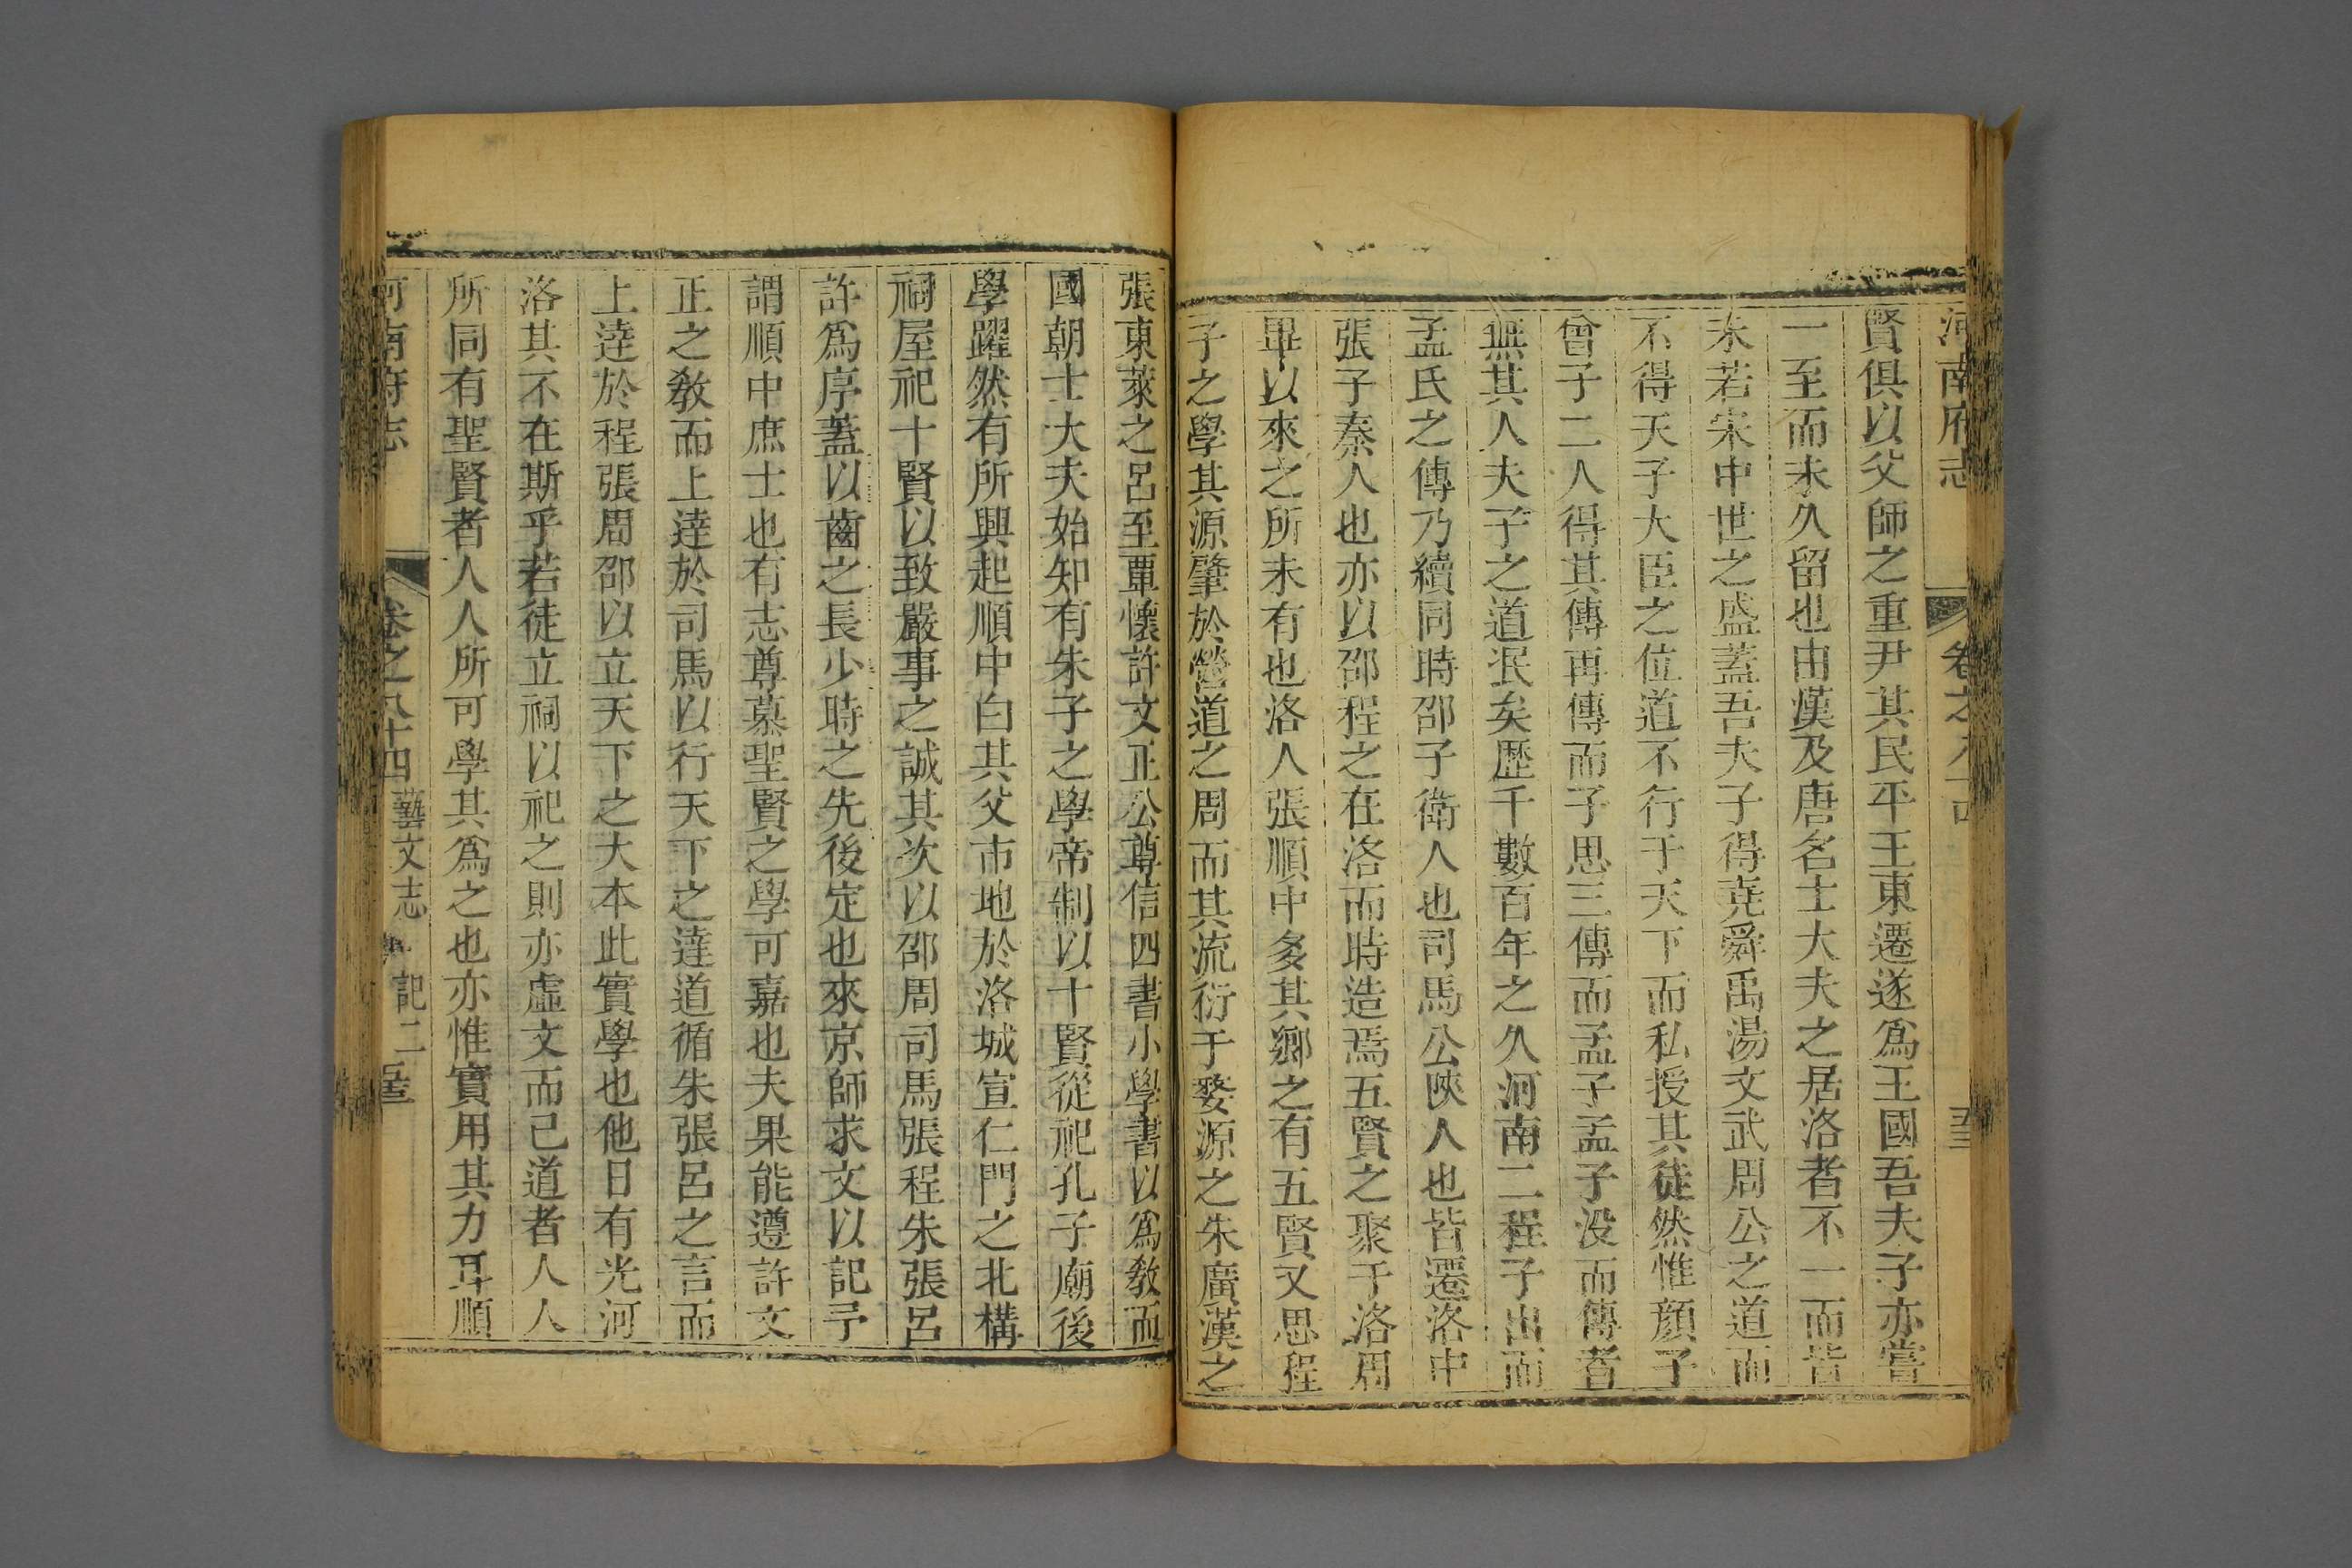 河南府志 卷之八十四
賢俱以父師之重尹其民平王東遷遂爲王國吾夫子亦嘗
一至而未久留也由漢及唐名士大夫之居洛者不一而皆
未若宋中世之盛蓋吾夫子得堯舜禹湯文武周公之道而
不得天子大臣之位道不行于天下而私授其徒然惟顔子
曾子二人得其傳再傳而子思三傳而孟子孟子没而傳者
無其人夫子之道泯矣歷千數百年之久河南二程子出而
孟氏之傳乃續同時邵子衛人也司馬公陝人也皆遷洛中
張子秦人也亦以邵程之在洛而時造焉五賢之聚于洛周
畢以來之所未有也洛人張順中多其鄉之有五賢又思程
子之學其源肇於營道之周而其流衍于婺源之朱廣漢之
張東萊之呂至覃懷許文正公尊信四書小學書以爲敎而
國朝士大夫始知有朱子之學帝制以十賢從祀孔子廟後
學躍然有所興起順中白其父市地於洛城宣仁門之北構
祠屋祀十賢以致嚴事之誠其次以邵周司馬張程朱張呂
許爲序蓋以齒之長少時之先後定也來京師求文以記予
謂順中庶士也有志尊慕聖賢之學可嘉也夫果能遵許文
正之敎而上達於司馬以行天下之達道循朱張呂之言而
上達於程張周邵以立天下之大本此實學也他日有光河
洛其不在斯乎若徒立祠以祀之則亦虛文而已道者人人
所同有聖賢者人人所可學其爲之也亦惟實用其力耳順
河南府志 卷之八十四 藝文志 記二